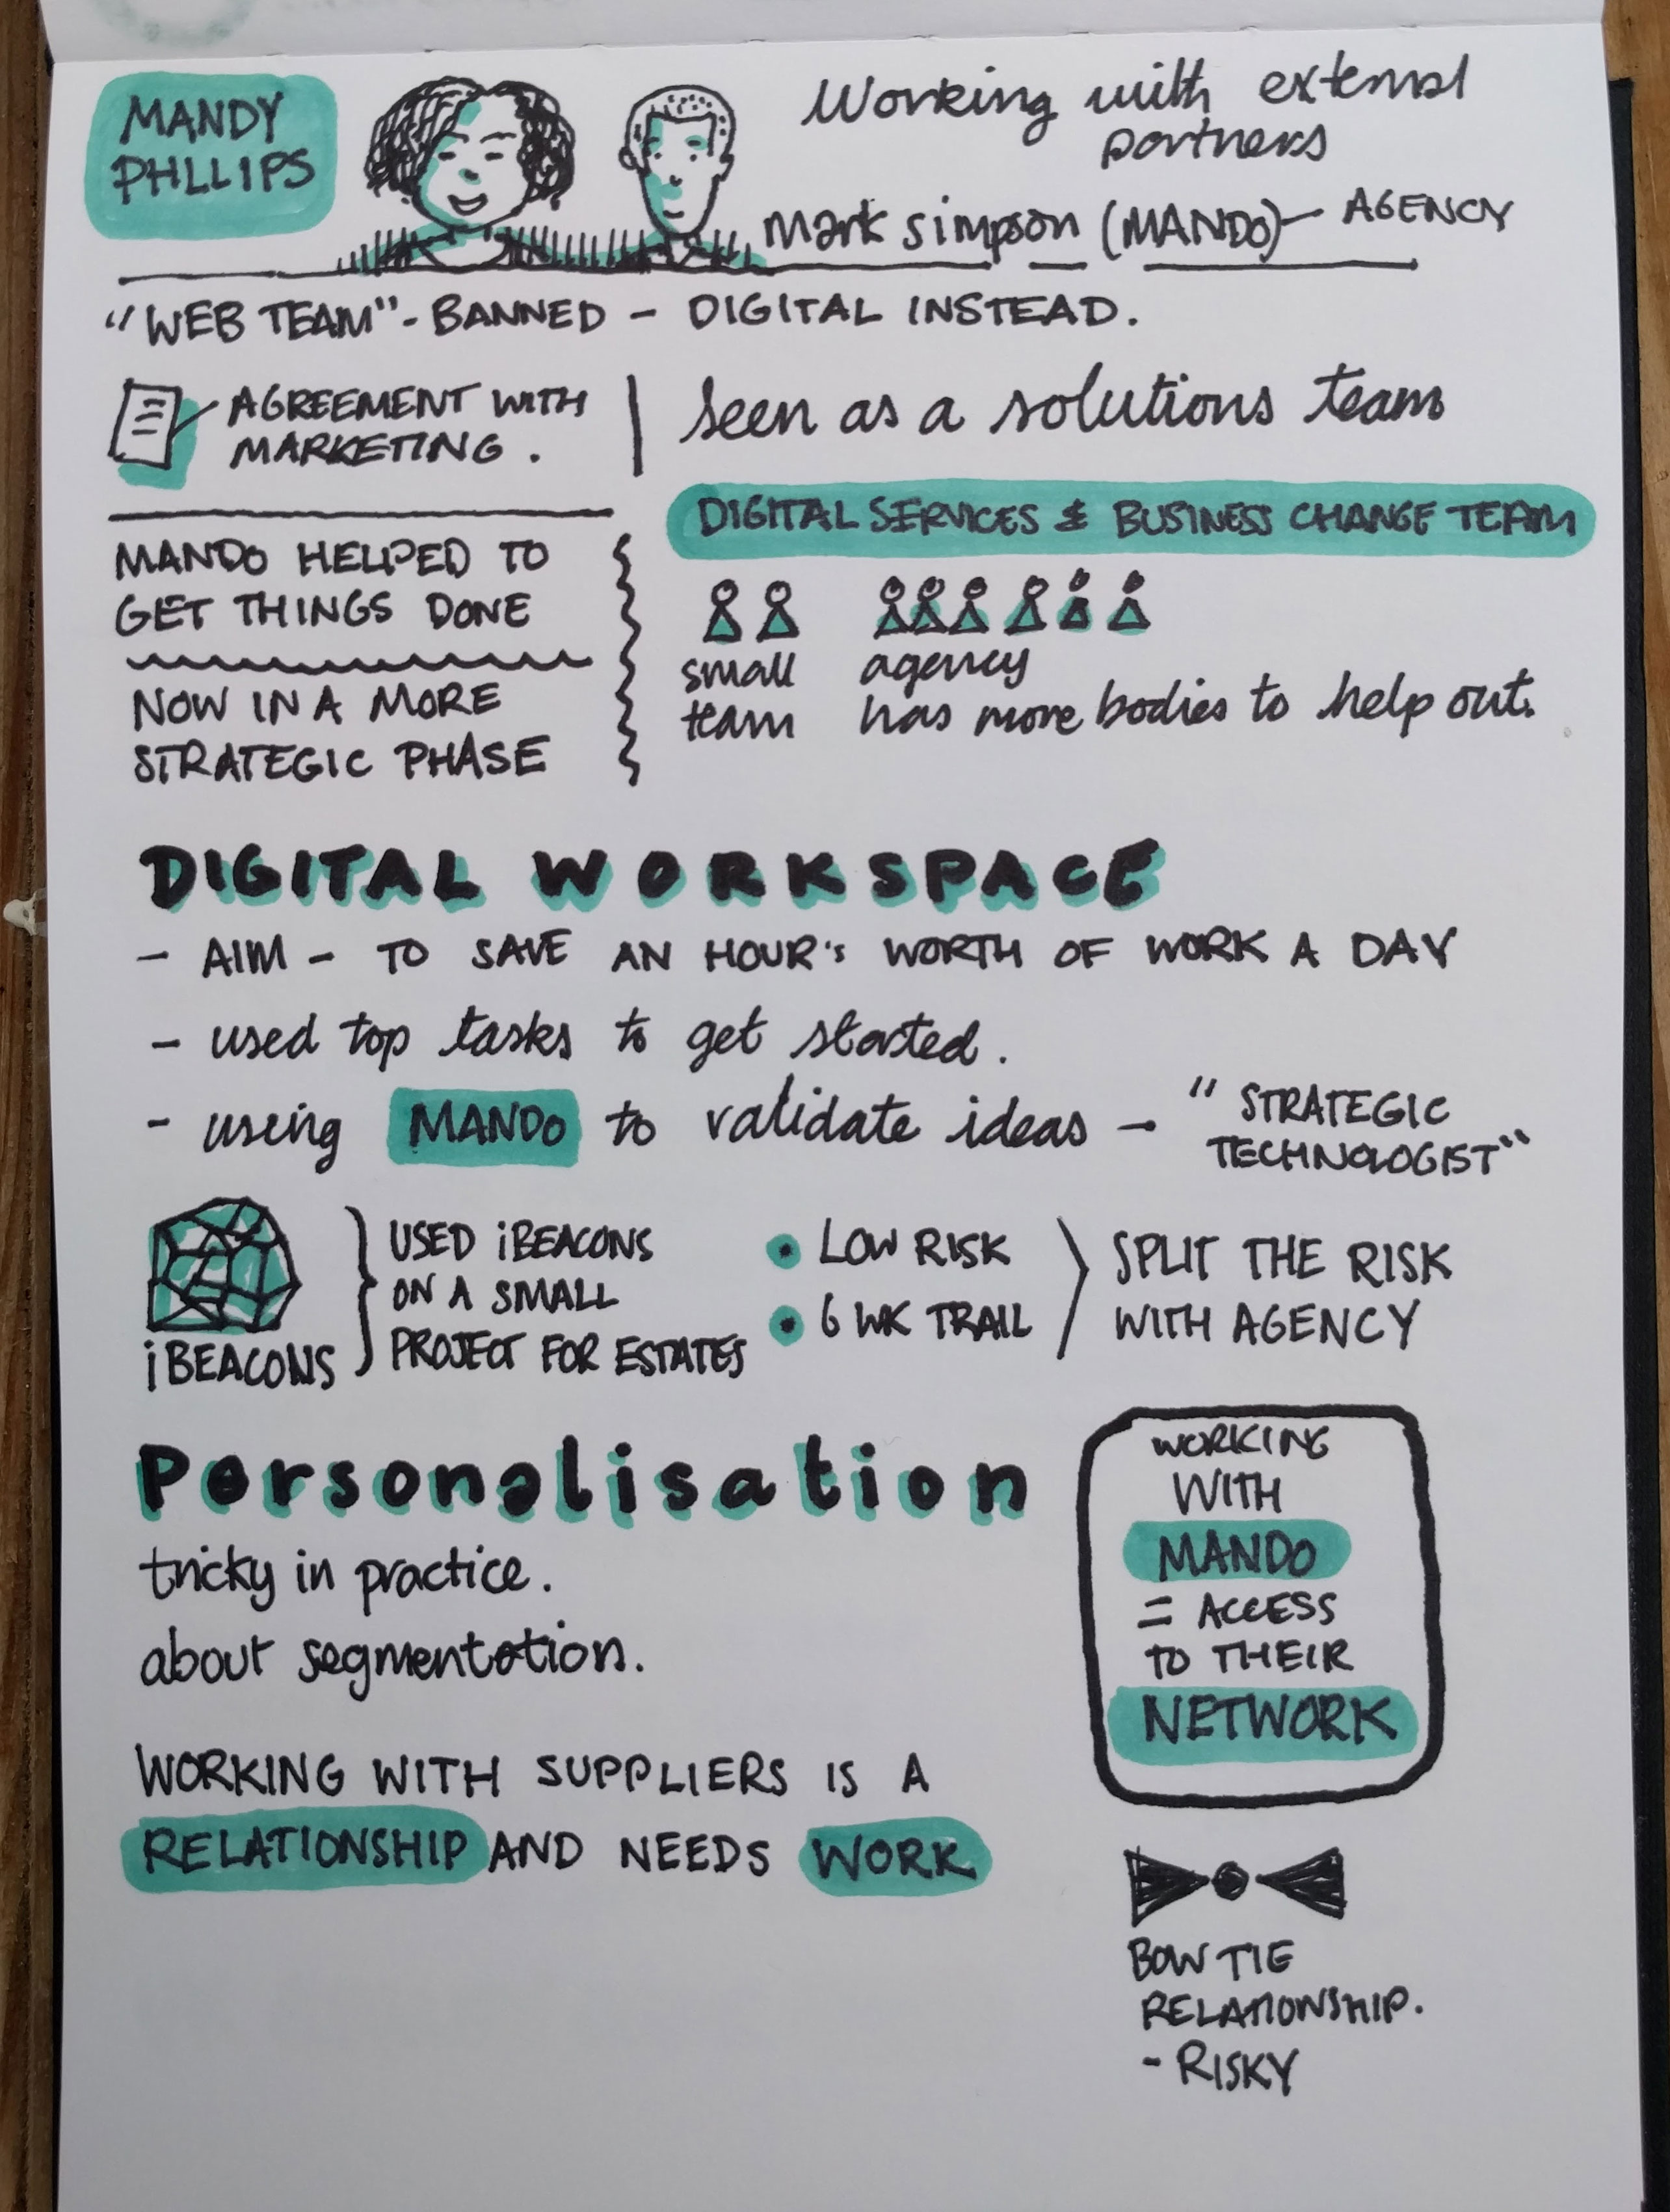 MANDY
PHLLIPS
Working with external
partners
Mark Simpson (MANDO) – AGENCY
"WEB TEAM" - BANNED – DIGITAL INSTEAD.
AGREEMENT WITH
MARKETING.
Seen as a solutions team
DIGITAL SERVICES & BUSINESS CHANGE TEAM
MANDO HELPED TO
GET THINGS DONE
NOW IN A MORE
STRATEGIC PHASE
small
team
agency
has more bodies to help out.
DIGITAL WORKSPACE
– AIM – TO SAVE AN HOUR'S WORTH OF WORK A DAY
– used top tasks to get started.
- using MANDO to validate ideas – "STRATEGIC
TECHNOLOGIST"
iBEACONS
USED iBEACONS
ON A SMALL
PROJECT FOR ESTATES
• LOW RISK
• 6 WK TRAIL
SPLIT THE RISK
WITH AGENCY
Personalisation
tricky in practice.
about segmentation.
WORKING
WITH
MANDO
= ACCESS
TO THEIR
NETWORK
WORKING WITH SUPPLIERS IS A
RELATIONSHIP AND NEEDS WORK
BOW TIE
RELATIONSHIP.
- RISKY